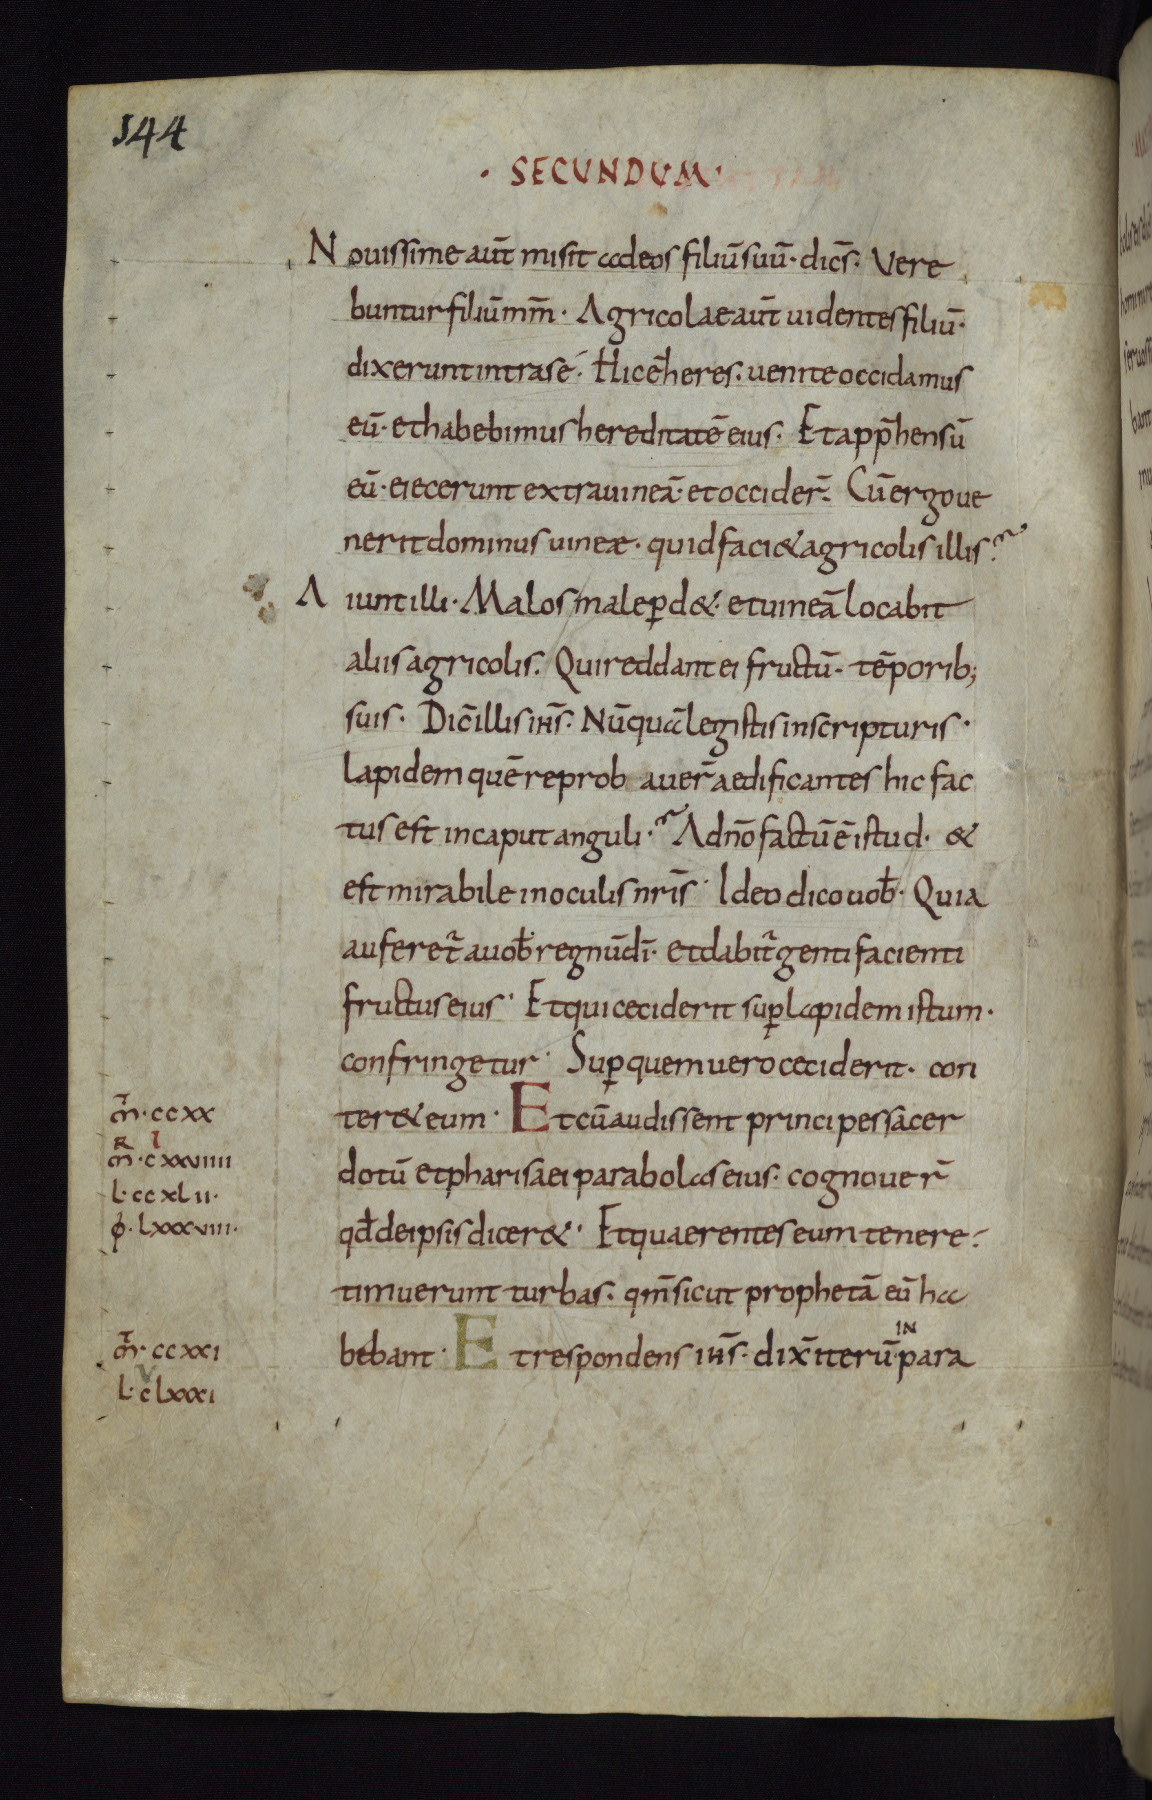 144
· SECUNDUM ·
Nouissime aut̄ misit adeos filiū suū · dicēs. Vere
buntur filiū mm̄ · Agricolae aut̄ uidentes filiū ·
dixerunt intra se · Hic ē heres. uenite occidamus
eū · et habebimus hereditatē eius · Et app̄hensū
eū · eiecerunt extra uineā · et occider̄. Cū ergo ue
nerit dominus uineæ · quid faci& agricolis illis?
Aiunt illi · Malos male ꝑd& · et uineā locabit
aliis agricolis. Qui reddant ei fructū · tēporib;
suis · Dic̄ illis ihs̄. Nūquā legistis inscripturis ·
Lapidem quē reprobauer̄ aedificantes hic fac
tus est in caput anguli · A dn̄o factū ē istud · &
est mirabile in oculis nr̄is · Ideo dico uob̄ · Quia
auferet̄ a uob̄ regnū dī · et dabit̄ genti facienti
fructus eius · Et qui ceciderit suꝑ lapidem istum ·
confringetur · Suꝑ quem uero ceciderit · con
ter& eum · Et cū audissent principes sacer
dotū et pharisaei parabolas eius · cognouer̄
qd̄ de ipsis dicer& · Et quaerentes eum tenere ·
timuerunt turbas · qm̄ sicut prophetā eū ha
bebant · Et respondens ihs̄ · dix̄ iterū · IN para
m̄ · ccxx
R I
m̄ · cxxviiii
L · ccxlii ·
ϕ · lxxxviii ·
m̄ · ccxxi
V
L · clxxxi